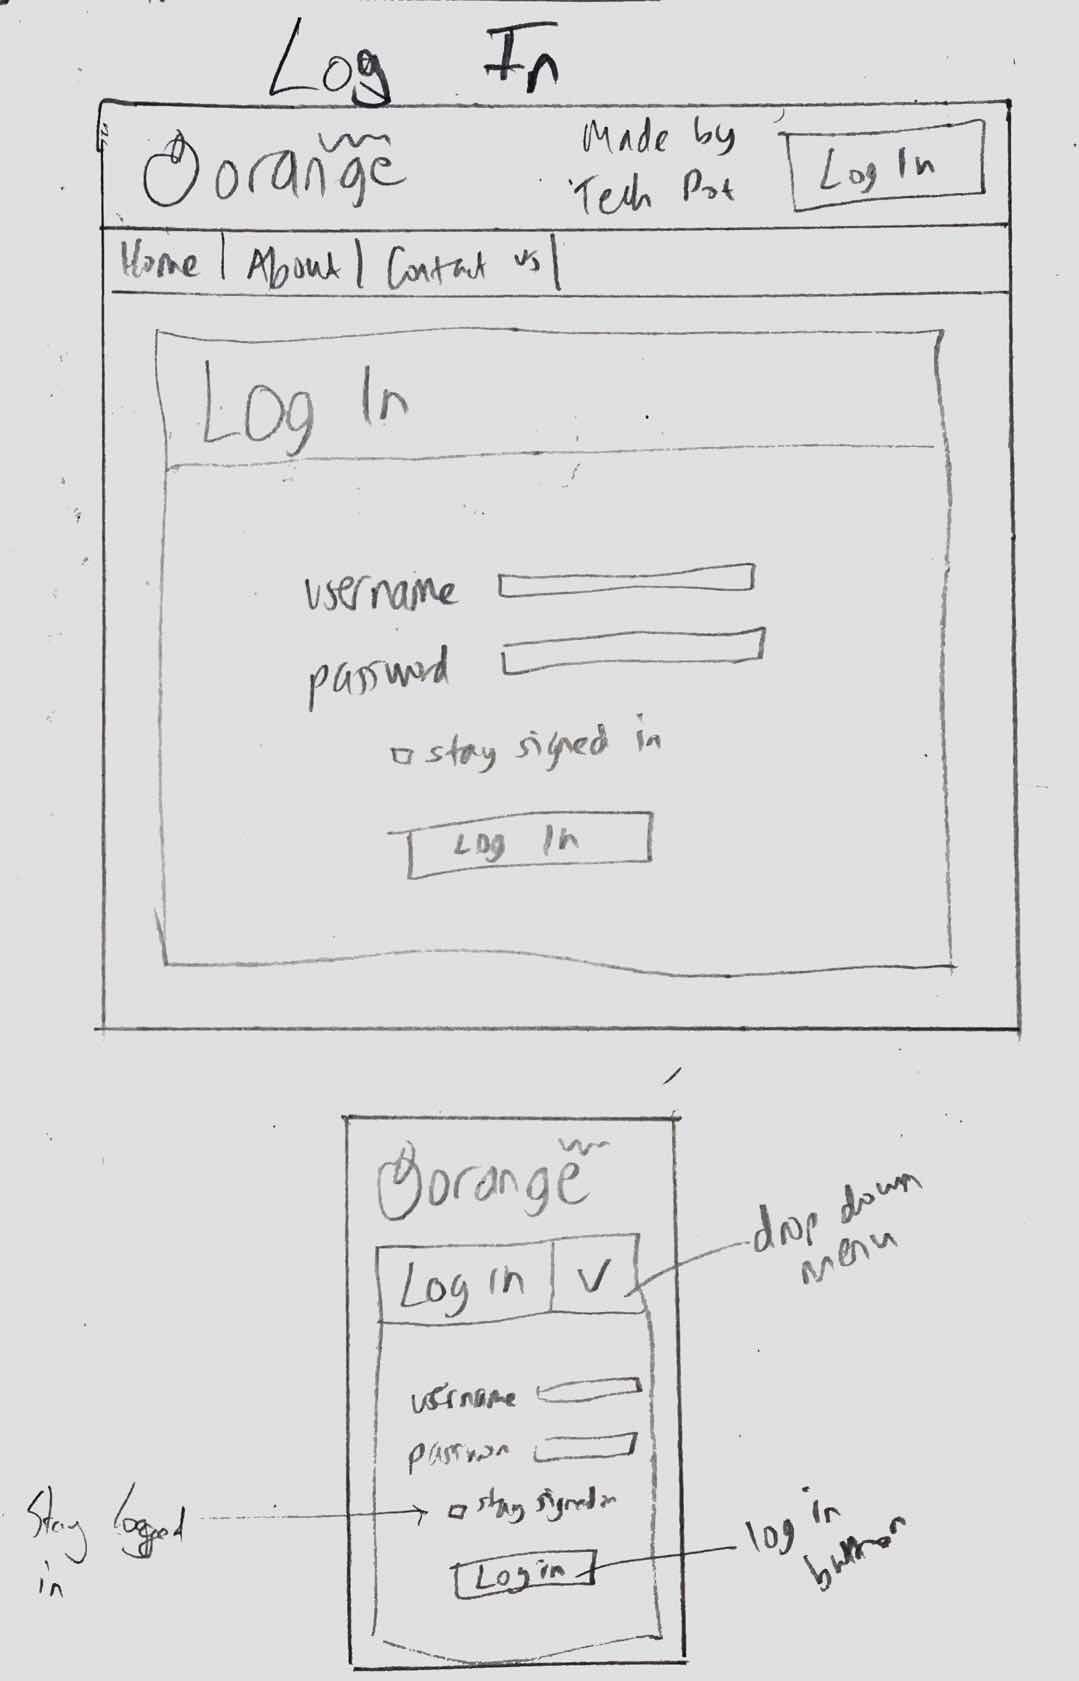 Log In
orange
Made by
Tech Pot
Log In
Home | About | Contact us |
Log In
username
password
stay signed in
Log In
orange
Log in V
drop down
menu
username
stay signed in
Stay logged
in
Log in
log in
button